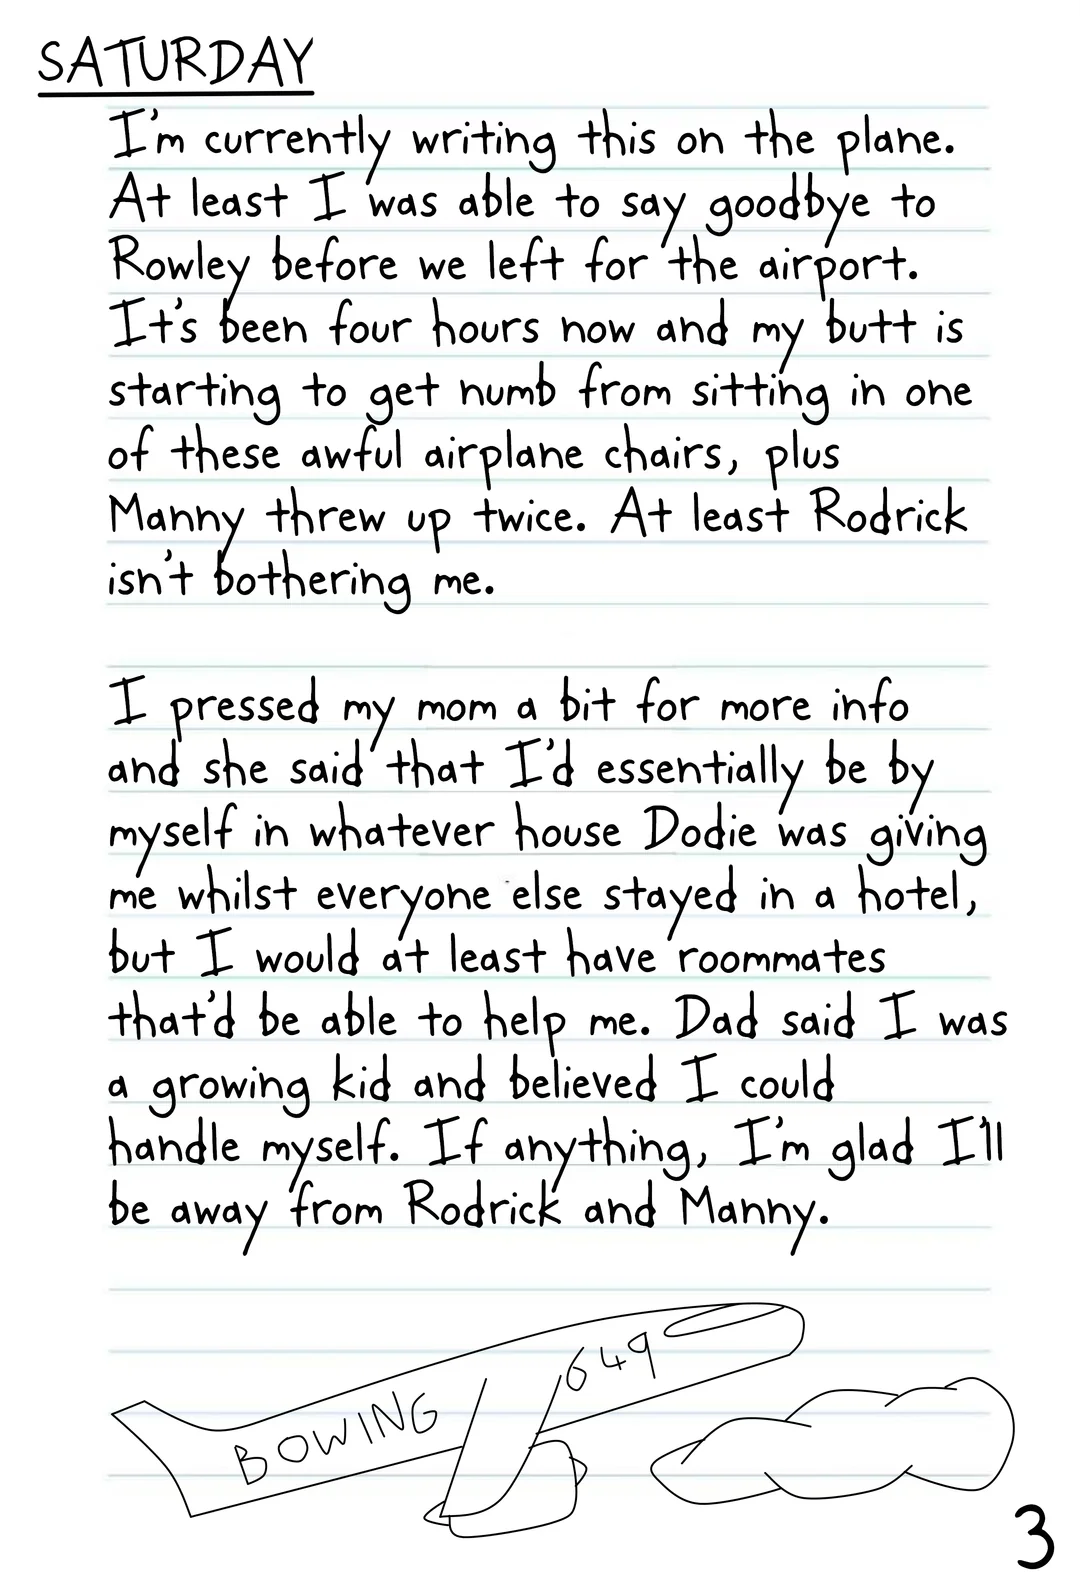 SATURDAY
I'm currently writing this on the plane.
At least I was able to say goodbye to
Rowley before we left for the airport.
It's been four hours now and my butt is
starting to get numb from sitting in one
of these awful airplane chairs, plus
Manny threw up twice. At least Rodrick
isn't bothering me.
I pressed my mom a bit for more info
and she said that I'd essentially be by
myself in whatever house Dodie was giving
me whilst everyone else stayed in a hotel,
but I would at least have roommates
that'd be able to help me. Dad said I was
a growing kid and believed I could
handle myself. If anything, I'm glad I'll
be away from Rodrick and Manny.
BOWING 649
3